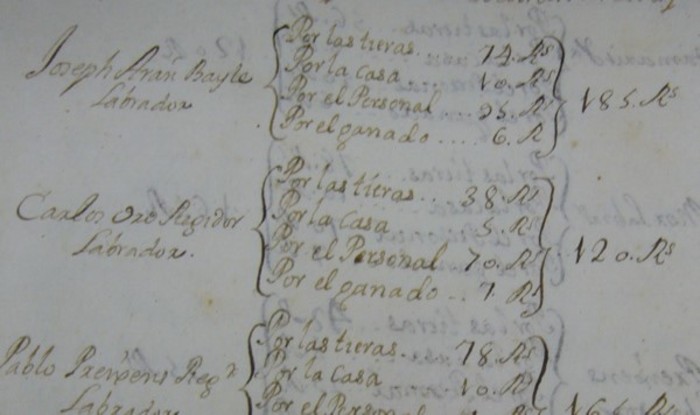 Joseph Aran Bayle
Labrador
Por las tieras. 74. Rs
Por la casa 10. Rs
Por el Personal 95. Rs
Por el ganado .... 6. R
185. Rs
Carlos Oro Regidor
Labrador.
Por las tieras... 38. Rs
Por la casa 5. Rs
Por el Personal 70. Rs
Por el ganado... 7. Rs
120. Rs
Pablo
Labrador
Por las tieras. 78. Rs
Por la casa 10. Rs
Por el Personal